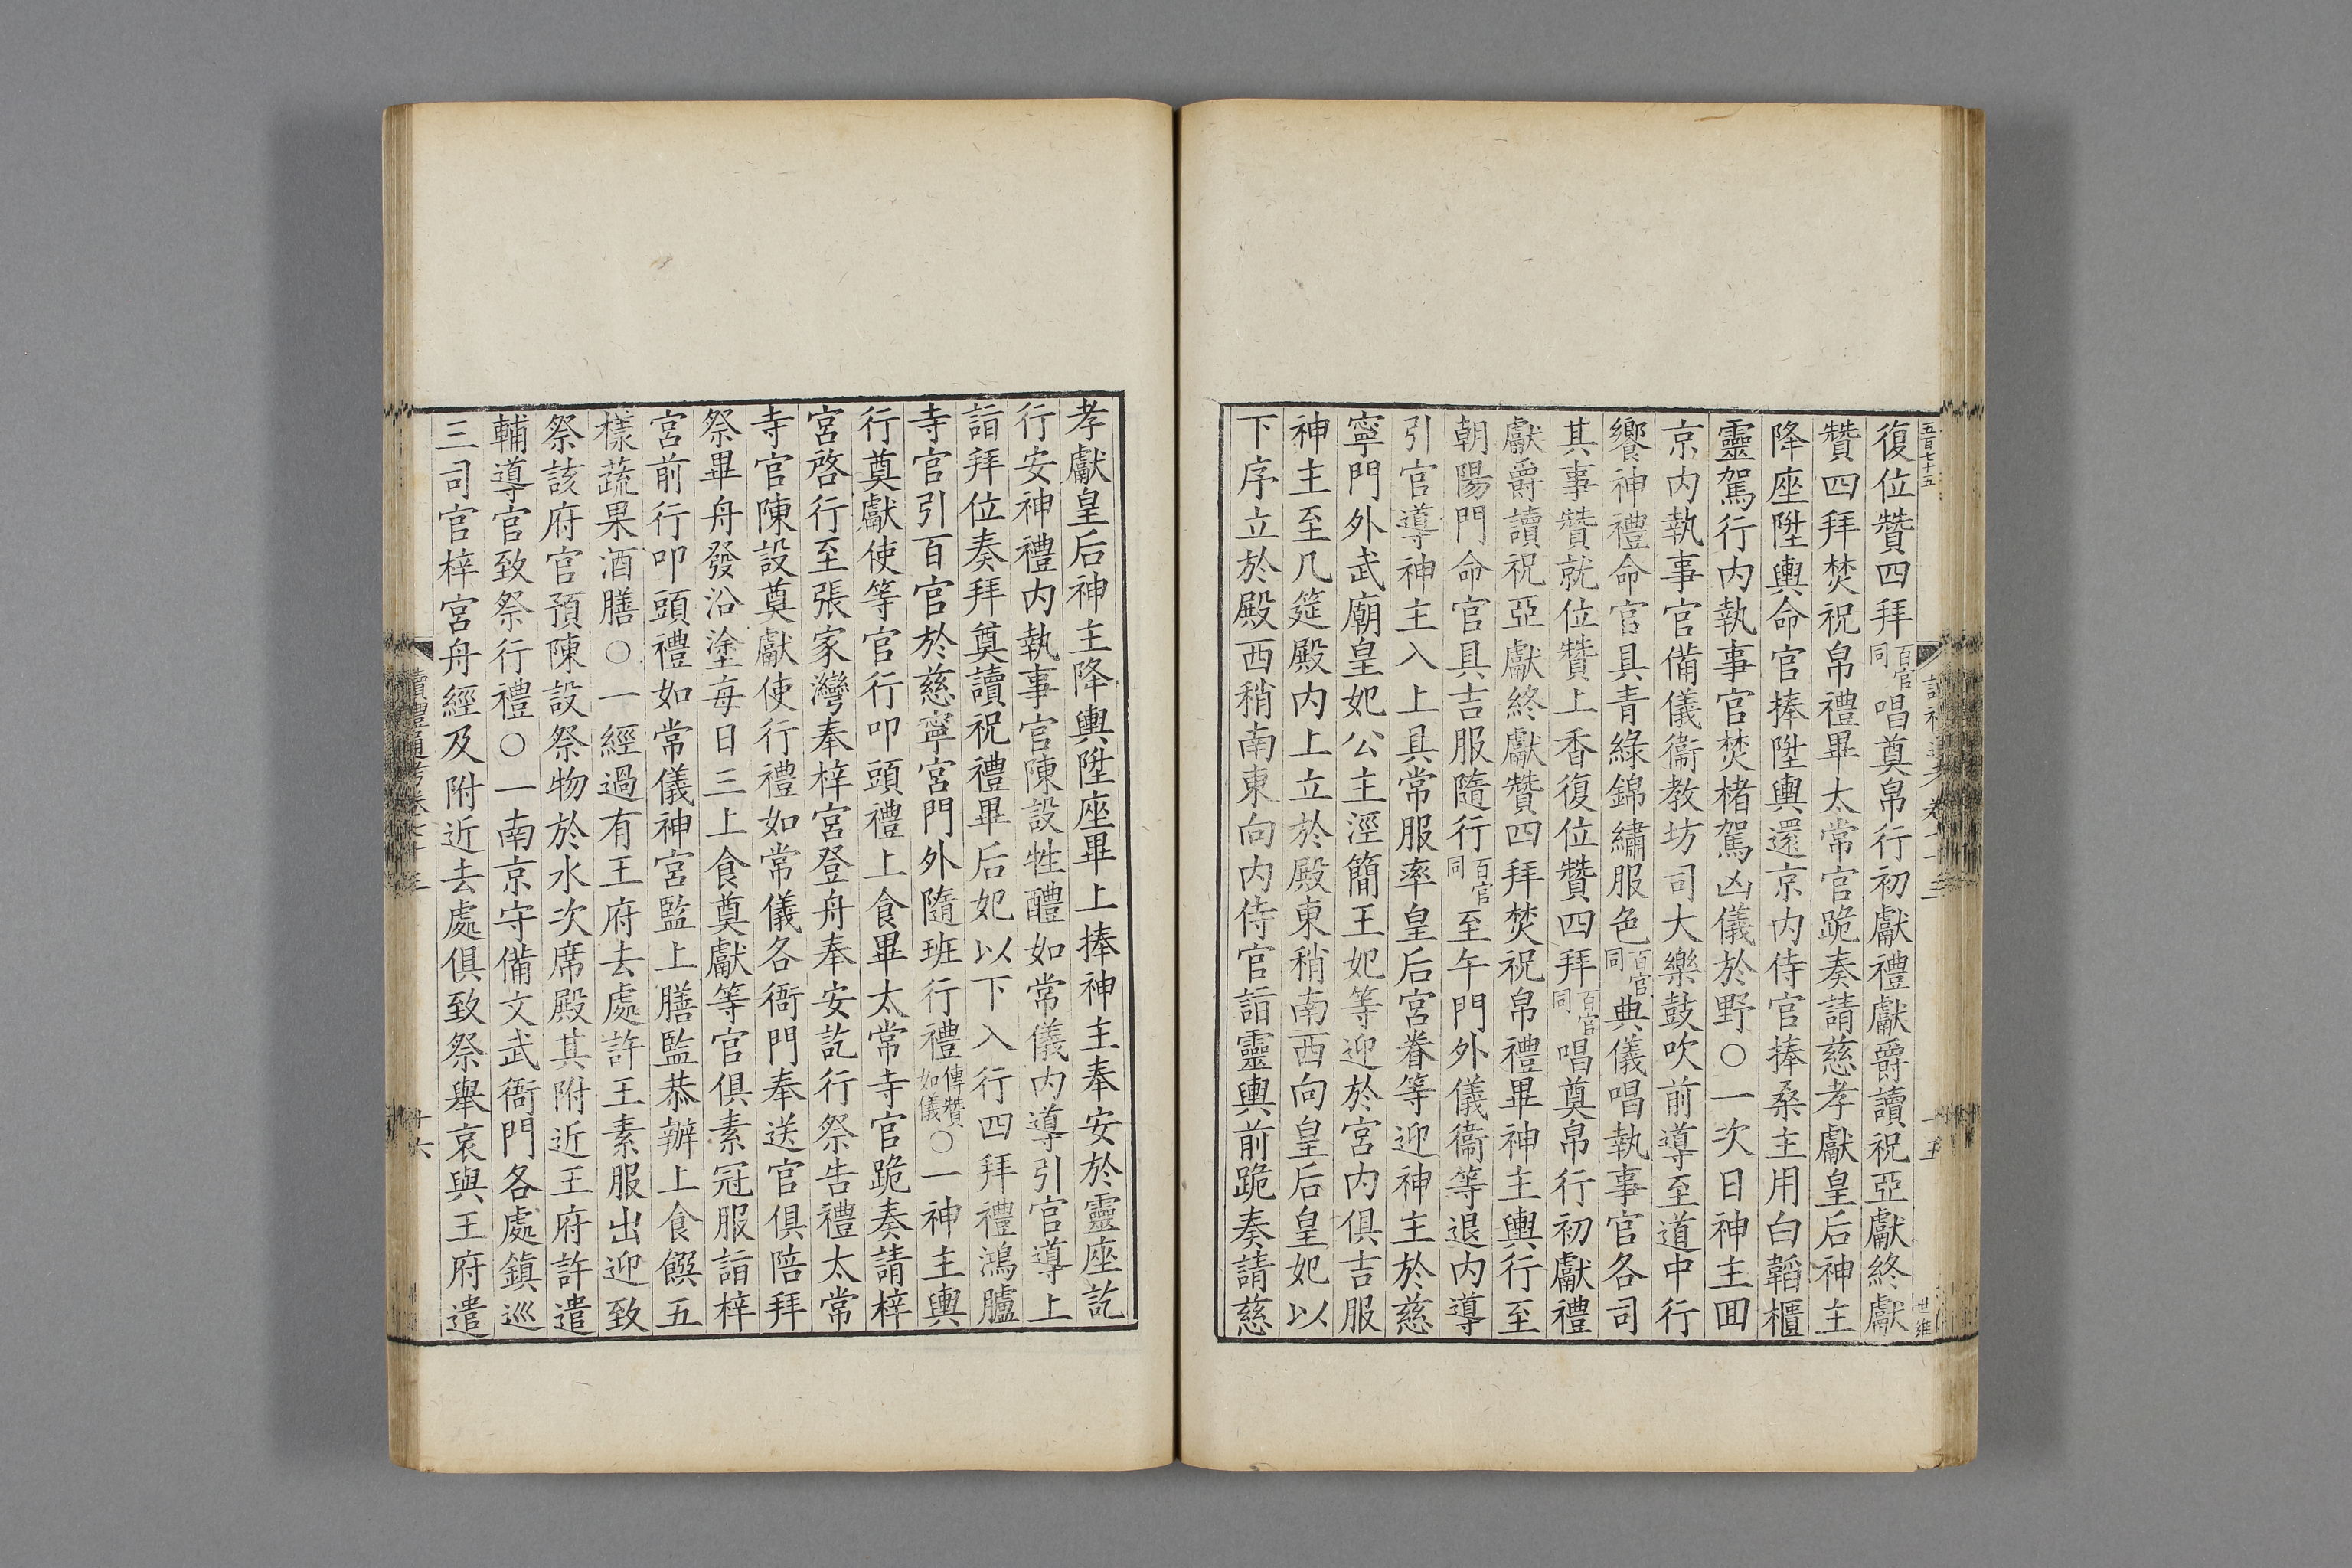 五百七十五
復位贊四拜百官同唱奠帛行初獻禮獻爵讀祝亞獻終獻
贊四拜焚祝帛禮畢太常官跪奏請慈孝獻皇后神主
降座陞輿命官捧陞輿還京内侍官捧桑主用白韜櫃
靈駕行内執事官焚楮駕凶儀於野○一次日神主囬
京内執事官備儀衞教坊司大樂鼓吹前導至道中行
饗神禮命官具青綠錦繡服色百官同典儀唱執事官各司
其事贊就位贊上香復位贊四拜百官同唱奠帛行初獻禮
獻爵讀祝亞獻終獻贊四拜焚祝帛禮畢神主輿行至
朝陽門命官具吉服隨行百官同至午門外儀衞等退内導
引官導神主入上具常服率皇后宮眷等迎神主於慈
寧門外武廟皇妃公主涇簡王妃等迎於宮内俱吉服
神主至几筵殿内上立於殿東稍南西向皇后皇妃以
下序立於殿西稍南東向内侍官詣靈輿前跪奏請慈
孝獻皇后神主降輿陞座畢上捧神主奉安於靈座訖
行安神禮内執事官陳設牲醴如常儀内導引官導上
詣拜位奏拜奠讀祝禮畢后妃以下入行四拜禮鴻臚
寺官引百官於慈寧宮門外隨班行禮傳贊如儀○一神主輿
行奠獻使等官行叩頭禮上食畢太常寺官跪奏請梓
宮啓行至張家灣奉梓宮登舟奉安訖行祭告禮太常
寺官陳設奠獻使行禮如常儀各衙門奉送官俱陪拜
祭畢舟發沿塗每日三上食奠獻等官俱素冠服詣梓
宮前行叩頭禮如常儀神宮監上膳監恭辦上食饌五
樣蔬果酒膳○一經過有王府去處許王素服出迎致
祭該府官預陳設祭物於水次席殿其附近王府許遣
輔導官致祭行禮○一南京守備文武衙門各處鎮巡
三司官梓宮舟經及附近去處俱致祭舉哀與王府遣
讀禮通考卷七十三